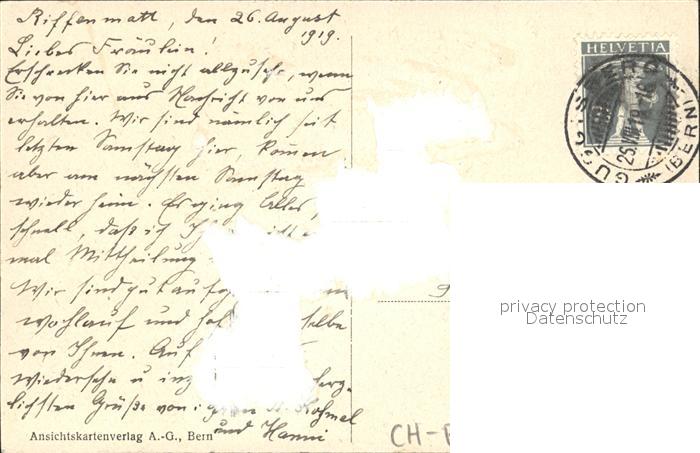 Riffenmatt, den 26. August
1919.
Liebes Fräulein!
Erschrecken Sie nicht allzusehr, wenn
Sie von hier aus Nachricht von uns
erhalten. Wir sind nämlich seit
letzten Samstag hier, kommen
aber am nächsten Samstag
wieder heim. Es ging Alles,
schnell, daß ich
mal Mittheilung
Wir sind gut
wohlauf und selbe
von Ihnen. Auf
Wiedersehn u
lichsten Grüße von
und Hanni
Ansichtskartenverlag A.-G., Bern
HELVETIA
(BERN)
privacy protection
Datenschutz
CH-